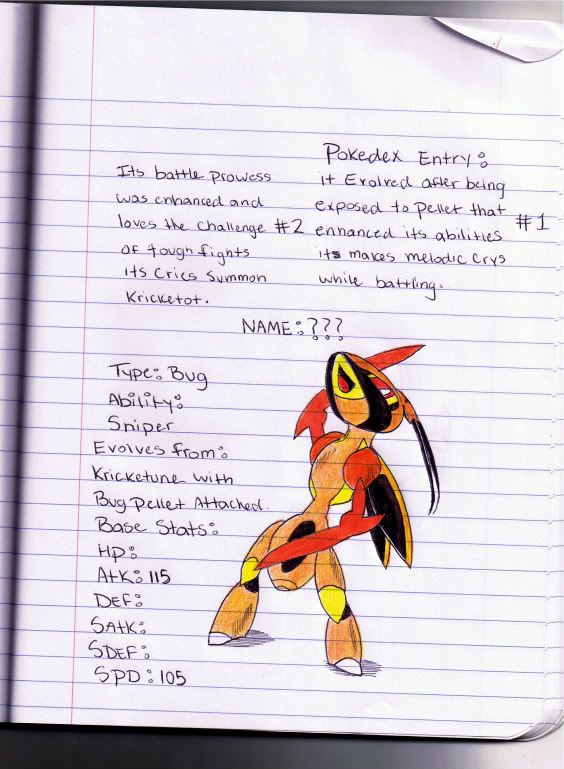 Pokedex Entry:
it Evolved after being
exposed to Pellet that #1
enhanced its abilities
its makes melodic crys
while battling.
Its battle prowess
was enhanced and
loves the challenge #2
of tough fights
its cries summon
Kricketot.
NAME: ???
Type: Bug
Ability:
Sniper
Evolves from:
Kricketune with
Bug Pellet Attached.
Base Stats:
HP:
Atk: 115
DEF:
SAtk:
SDEF:
SPD: 105